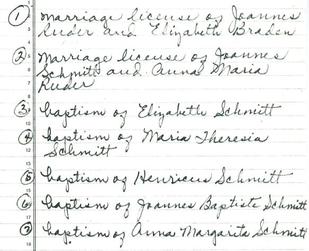 1 marriage license of Joannes
Ruder and Elizabeth Braden
2 marriage license of Joannes
Schmitt and Anna Maria
Ruder
3 baptism of Elizabeth Schmitt
4 baptism of Maria Theresia
Schmitt
5 baptism of Henricus Schmitt
6 baptism of Joannes Baptiste Schmitt
7 baptism of Anna Margarita Schmitt